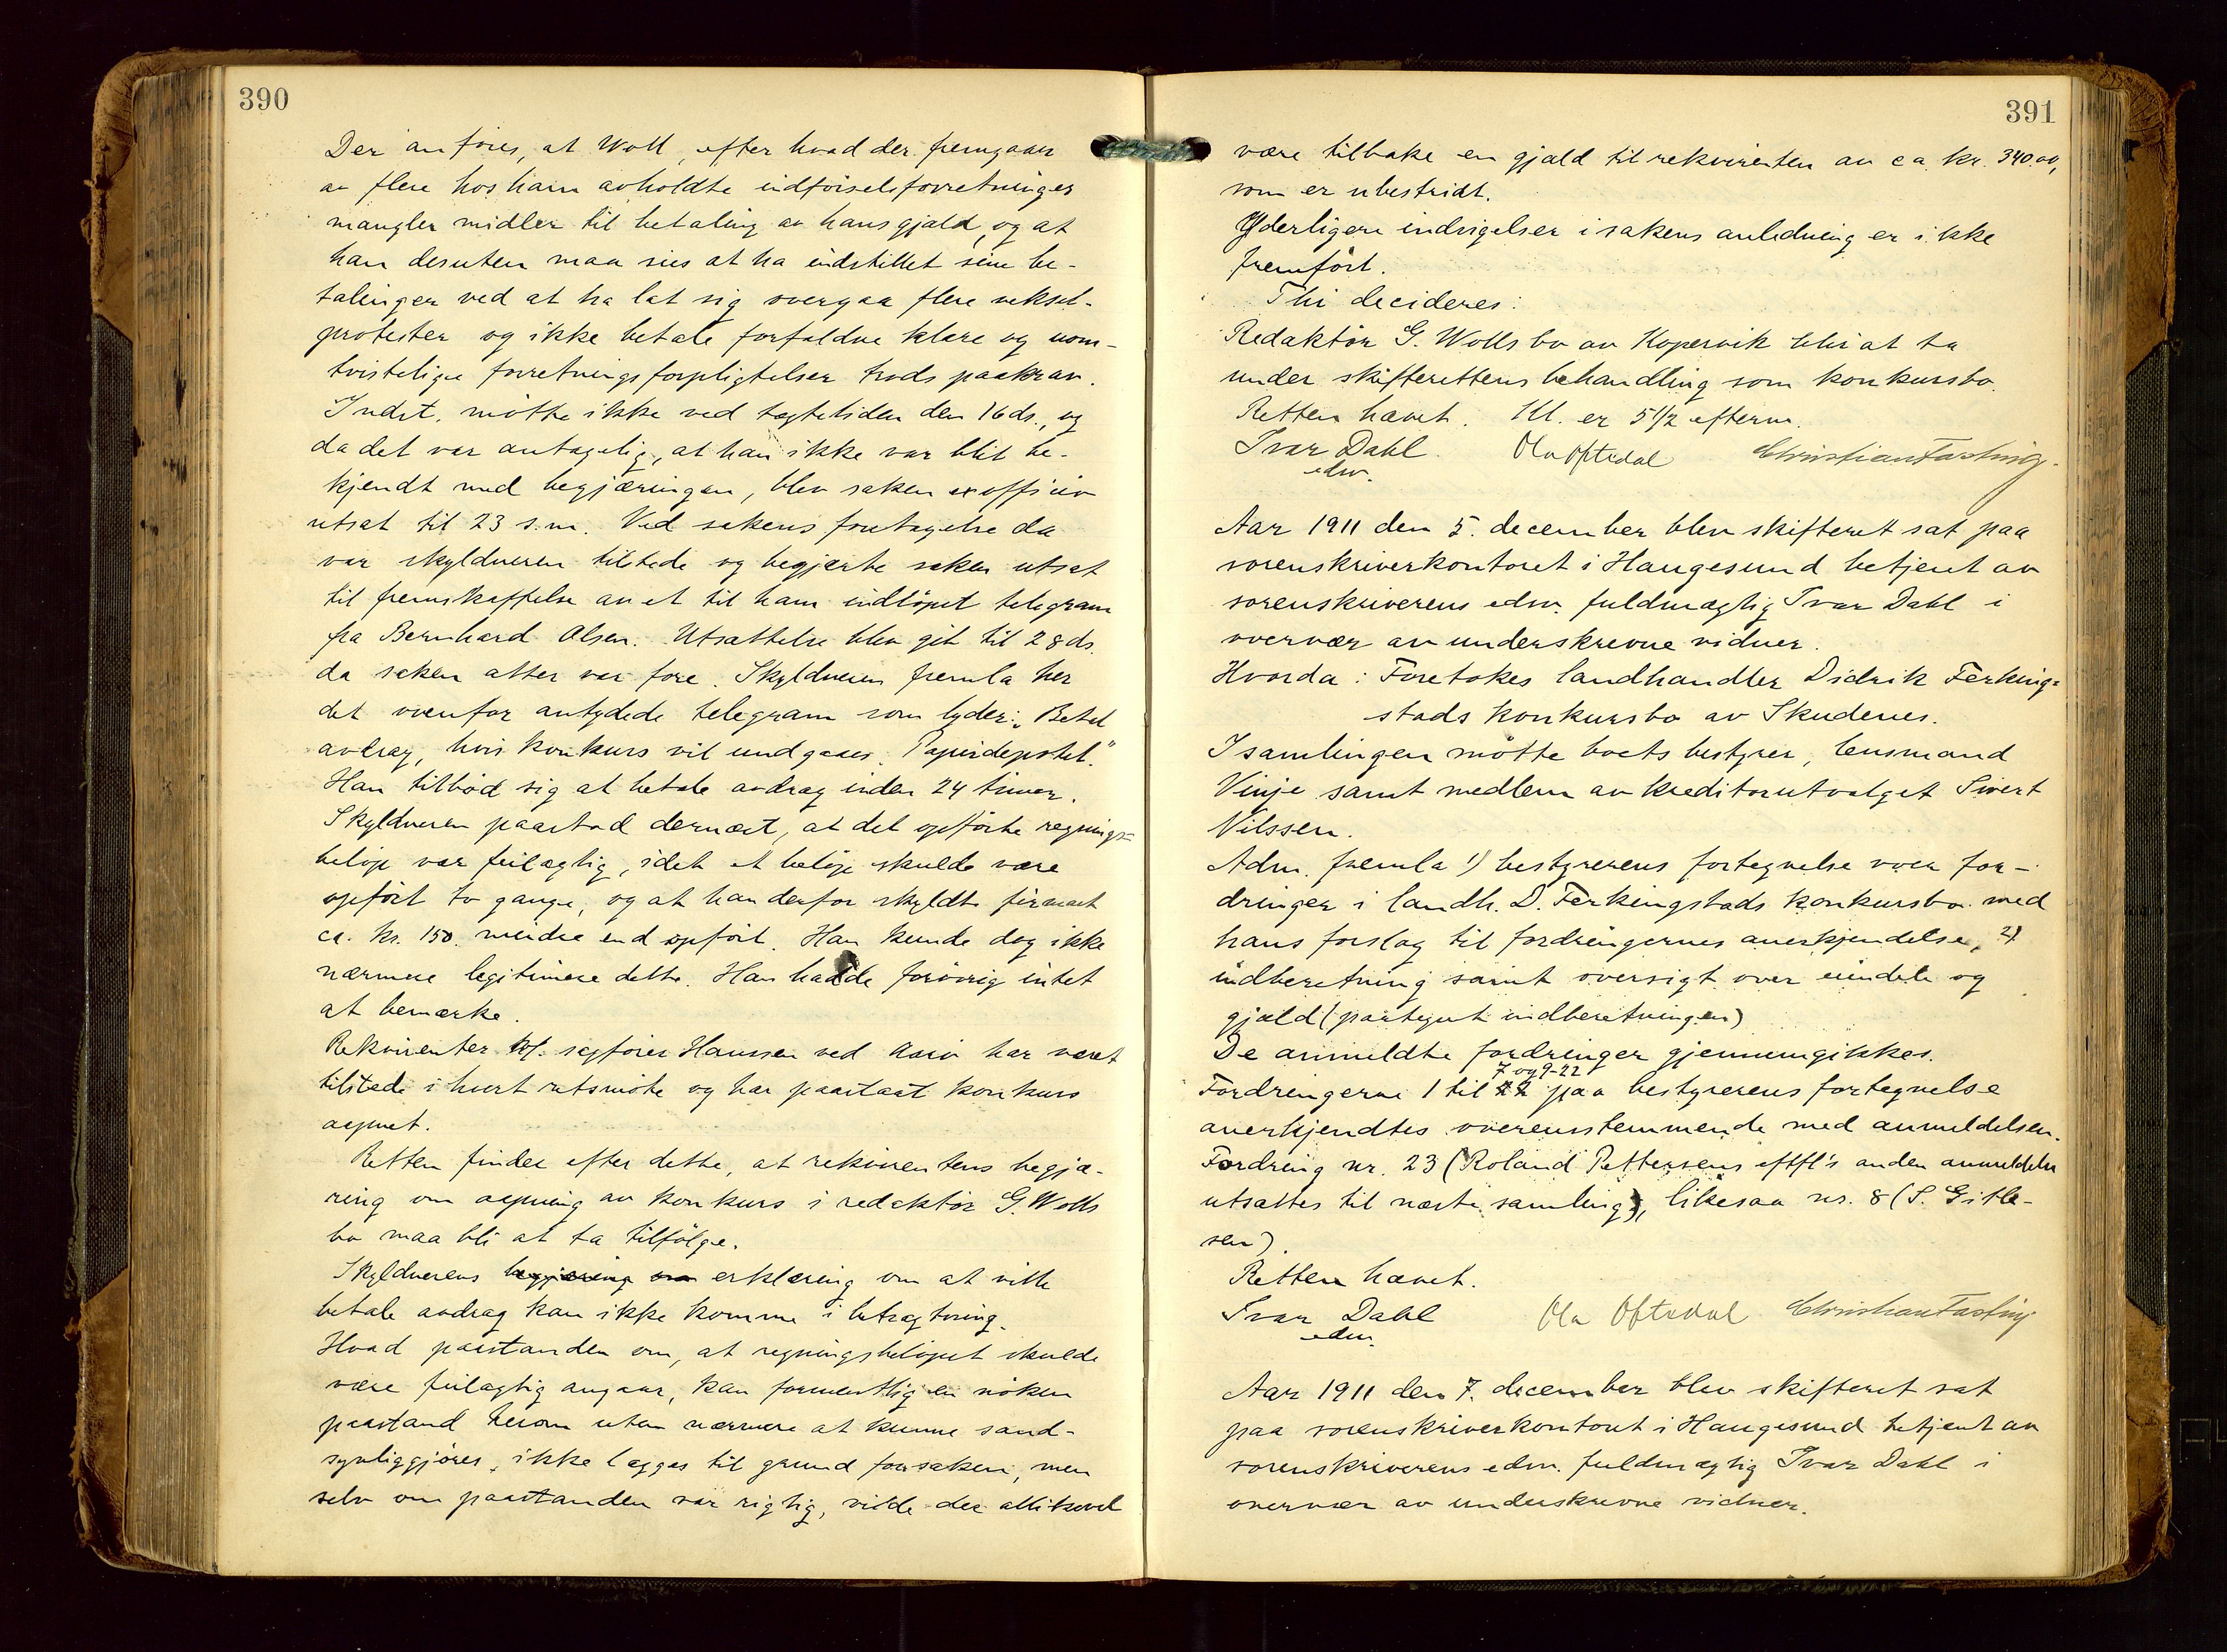 390
Der anføres, at Woll, efter hvad der fremgaar
av flere hos ham avholdte indførselsforretninger
mangler midler til betaling av hans gjæld, og at
han desuten maa sies at ha indstillet sine be-
talinger ved at ha lat sig overgaa flere veksel-
protester og ikke betale forfaldne klare og uom-
tvistelige forretningsforpligtelser trods paakrav.
Indst. møtte ikke ved tægtetiden den 16 ds., og
da det var antagelig, at han ikke var blit be-
kjendt med begjæringen, blev saken ex officio
utsat til 23 s.m. Ved sakens foretagelse da
var skyldneren tilstede og begjærte saken utsat
til fremskaffelse av et til ham indløpet telegram
fra Bernhard Olsen. Utsættelse blev git til 28 ds.
da saken atter var fore. Skyldneren fremla her
det ovenfor antydede telegram som lyder: "Betal
avdrag, hvis konkurs vil undgaaes. Papirdepotet."
Han tilbød sig at betale avdrag inden 24 timer.
Skyldneren paastod dernæst, at det opførte regnings-
beløp var feilagtig, idet et beløp skulde være
opført to gange, og at han derfor skyldte firmaet
ca. kr. 150. mindre end opført. Han kunde dog ikke
nærmere legitimere dette. Han hadde forøvrig intet
at bemærke.
Rekvirenten v/ sagfører Hanssen ved har været
tilstede i hvert retsmøte og har paastaat konkurs
aapnet.
Retten finder efter dette, at rekvirentens begjæ-
ring om aapning av konkurs i redaktør G. Wolls
bo maa bli at ta tilfølge.
Skyldnerens begjæring om erklæring om at ville
betale avdrag kan ikke komme i betragtning.
Hvad paastanden om, at regningsbeløpet skulde
være feilagtig angaar, kan formentlig en nøken
paastand herom uten nærmere at kunne sand-
synliggjøres, ikke lægges til grund for saken, men
selv om paastanden var rigtig, vilde der allikevel
391
være tilbake en gjæld til rekvirenten av ca. kr. 340.00,
som er ubestridt.
Yderligere indsigelser i sakens anledning er ikke
fremført.
Thi decideres:
Redaktør G. Wolls bo av Kopervik blir at ta
under skifterettens behandling som konkursbo.
Retten hævet. Kl. er 5 1/2 efterm.
Ivar Dahl Ola Oftedal Christian Fasting
edsv.
Aar 1911 den 5. december blev skifteret sat paa
sorenskriverkontoret i Haugesund betjent av
sorenskriverens edsv. fuldmægtig Ivar Dahl i
overvær av underskrevne vidner.
Hvorda: Foretokes landhandler Didrik Ferking-
stads konkursbo av Skudenes.
I samlingen møtte boets bestyrer, lensmand
Vinje samt medlem av kreditorutvalget Sivert
Nilssen.
Adm. fremla 1) bestyrerens fortegnelse over for-
dringer i landh. D. Ferkingstads konkursbo med
hans forslag til fordringernes anerkjendelse, 2)
indberetning samt oversigt over eiendele og
gjæld (paategnet indberetningen)
De anmeldte fordringer gjennemgikkes.
7 og 9-22
Fordringerne 1 til 22 paa bestyrerens fortegnelse
anerkjendtes overensstemmende med anmeldelsen.
Fordring nr. 23 (Roland Pettersens eftfl's anden anmeldelse
utsattes til næste samling), likesaa nr. 8 (S. Gitle-
sen).
Retten hævet.
Ivar Dahl Ola Oftedal Christian Fasting
edsv.
Aar 1911 den 7. december blev skifteret sat
paa sorenskriverkontoret i Haugesund betjent av
sorenskriverens edsv. fuldmægtig Ivar Dahl i
overvær av underskrevne vidner.